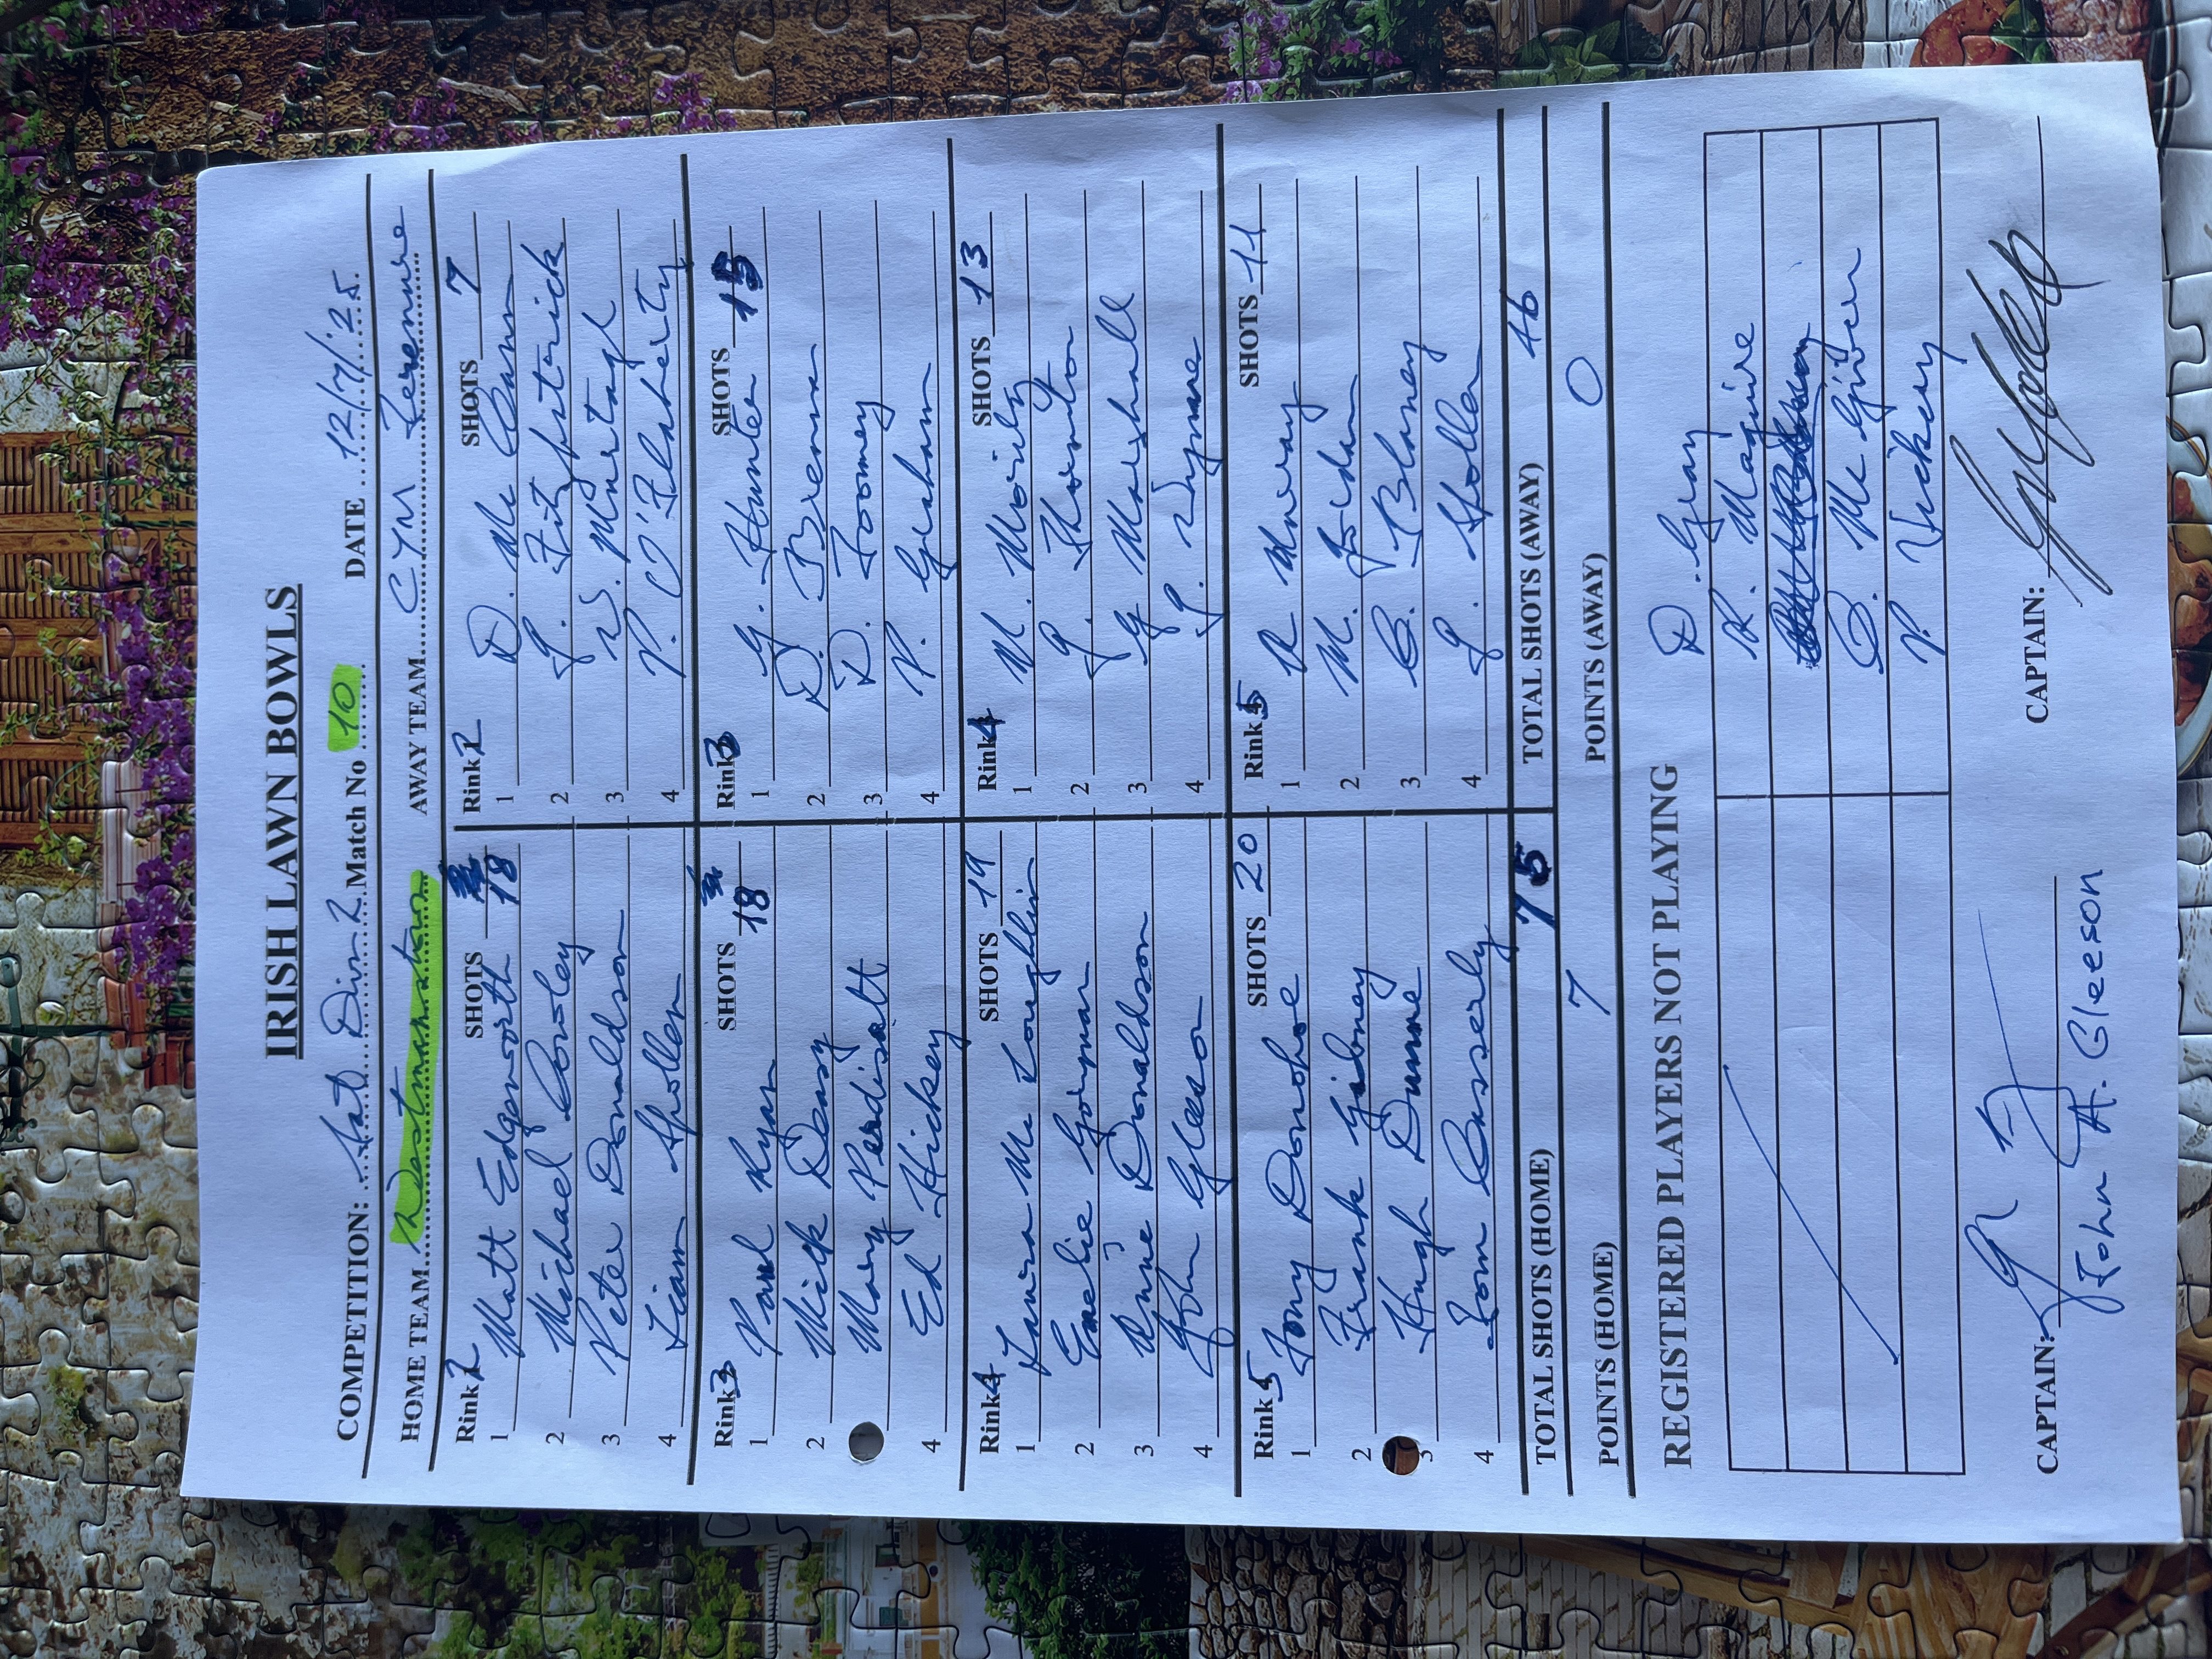 IRISH LAWN BOWLS
COMPETITION: Sat Divn 2 Match No 10 DATE 12/7/'25.
HOME TEAM Westmanstown AWAY TEAM CYM Terenure
Rink 2 SHOTS 18 Rink 2 SHOTS 7
1 Matt Edgeworth 1 D. Mc Cann
2 Michael Cowley 2 J. Fitzpatrick
3 Peter Donaldson 3 W. Murtagh
4 Liam Spollen 4 P. O'Flaherty
Rink 3 SHOTS 18 Rink 3 SHOTS 15
1 Paul Ryan 1 G. Hunter
2 Mick Deasy 2 D. Brennan
Mary Perdisatt 3 D. Toomey
4 Ed Hickey 4 P. Graham
Rink 4 SHOTS 19 Rink 4 SHOTS 13
1 Laura Mc Loughlin 1 M.
2 Emelie Gorman 2 J. Thornton
3 Anne Donaldson 3 G Marshall
4 John Gleeson 4 J. Synnes
Rink 5 SHOTS 20 Rink 5 SHOTS 11
1 Tony Donohoe 1 R Murray
2 Frank Gibney 2 M.
3 Hugh Dunne 3 C. Blaney
4 Tom Casserly 4 J. Spollen
TOTAL SHOTS (HOME) 75 TOTAL SHOTS (AWAY) 46
POINTS (HOME) 7 POINTS (AWAY) 0
REGISTERED PLAYERS NOT PLAYING
D. Gray
R. Maguire
D. Mc Giver
P. Vickery
CAPTAIN: CAPTAIN:
John A. Gleeson